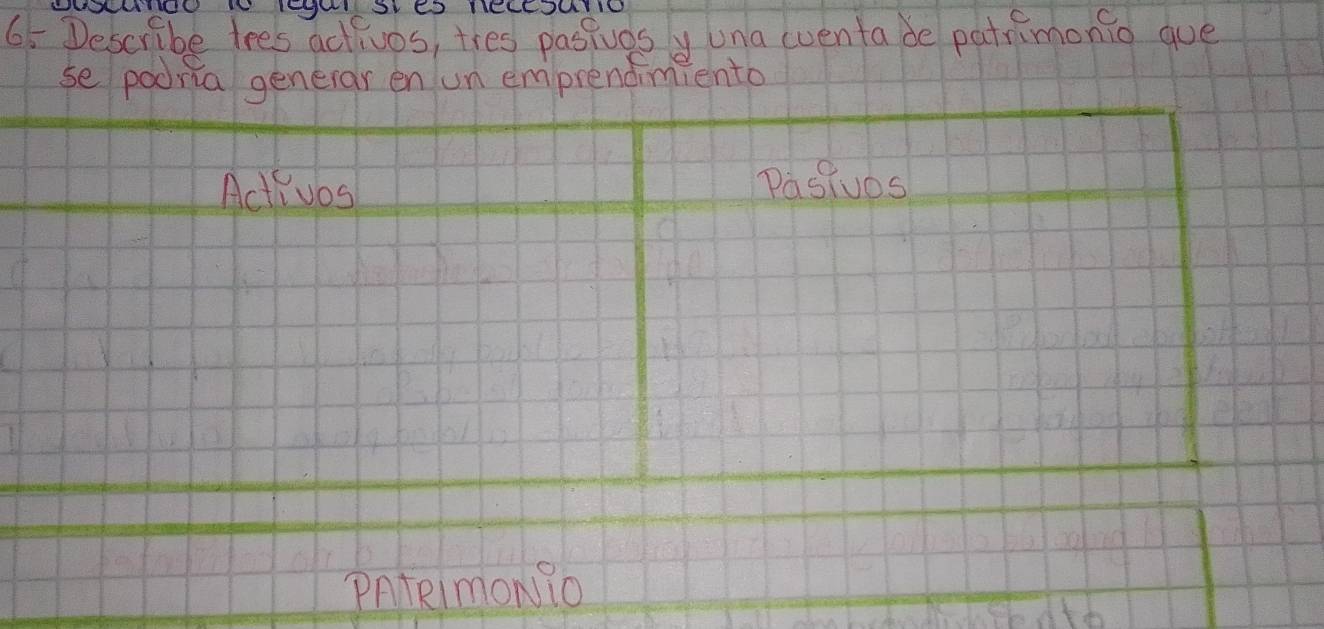 buscando lo legal si es necesario
6.- Describe tres activos, tres pasivos y una cuenta de patrimonio que
se podría generar en un emprendimiento
Activos Pasivos
PATRIMONIO